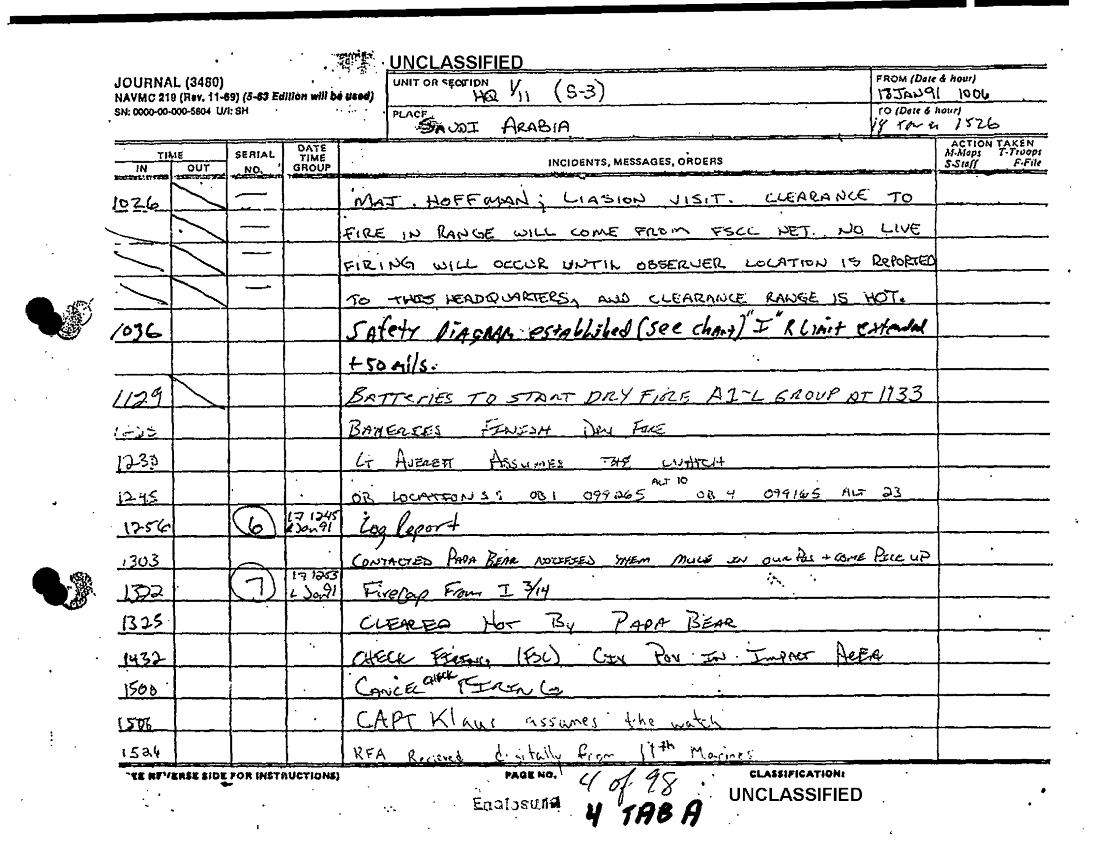 UNCLASSIFIED
JOURNAL (3480)
NAVMC 210 (Rev. 11-69) (5-63 Edition will be used)
SN: 0000-00-000-5604 U/I: SH
UNIT OR SECTION
HQ 1/11 (S-3)
PLACE
SAUDI ARABIA
FROM (Date & hour)
18 JAN 91 1006
TO (Date & hour)
1526
TIME
IN OUT
SERIAL NO.
DATE TIME GROUP
INCIDENTS, MESSAGES, ORDERS
ACTION TAKEN
M-Maps T-Troops
S-Staff F-File
1026 — MAJ. HOFFMAN; LIASION VISIT. CLEARANCE TO
— FIRE IN RANGE WILL COME FROM FSCC NET. NO LIVE
— FIRING WILL OCCUR UNTIL OBSERVER LOCATION IS REPORTED
— TO THIS HEADQUARTERS, AND CLEARANCE RANGE IS HOT.
1036 Safety DIAGRAM established (see chart) "I" R Limit extended
+50 mils.
1129 BATTERIES TO START DRY FIRE A1-L GROUP AT 1133
BATTERIES FINISH DRY FIRE
1230 LT AVERETT ASSUMES THE WATCH
1245 OB LOCATIONS: OB 1 099265 ALT 10 OB 4 099165 ALT 23
1256 6 171245 Jan 91 Log Report
1303 CONTACTED PAPA BEAR NOTIFIED THEM MULE IN OUR POS + COME PICK UP
1322 7 171253 Jan 91 Firecap From I 3/14
1325 CLEARED HOT BY PAPA BEAR
1432 CHECK FIRING (FSC) CIV POV IN IMPACT AREA
1500 CANCEL CHECK FIRING
1506 CAPT Klaus assumes the watch
1524 RFA Recieved digitally from 11th Marines
REVERSE SIDE FOR INSTRUCTIONS)
PAGE NO.
4 of 98
CLASSIFICATION:
UNCLASSIFIED
Enclosure
4 TAB A